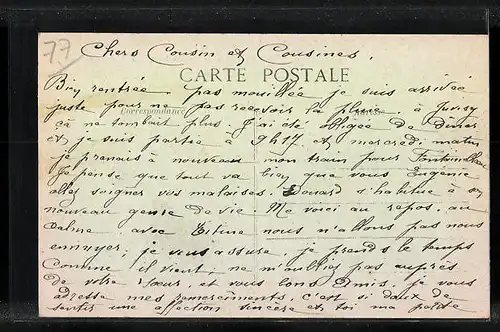 77
Chers Cousin et Cousines.
CARTE POSTALE
Correspondance
Bien rentrée pas mouillée je suis arrivée
juste pour ne pas recevoir la pluie à Juvisy
çà ne tombait plus J'ai été obligée de diner
et je suis partie à 9h17 et mercredi matin
je prenais à nouveau mon train pour Fontainebleau
Je pense que tout va bien que vous Eugénie
allez soigner vos malaises. Edouard s'habitue à son
nouveau genre de vie. Me voici au repos, au
calme avec Titine nous n'allons pas nous
ennuyer, je vous assure, je prends le temps
comme il vient, ne m'oubliez pas auprès
de votre sœur, et vous bons Amis, je vous
adresse mes remerciements, c'est si doux de
sentir une affection sincère et toi ma petite